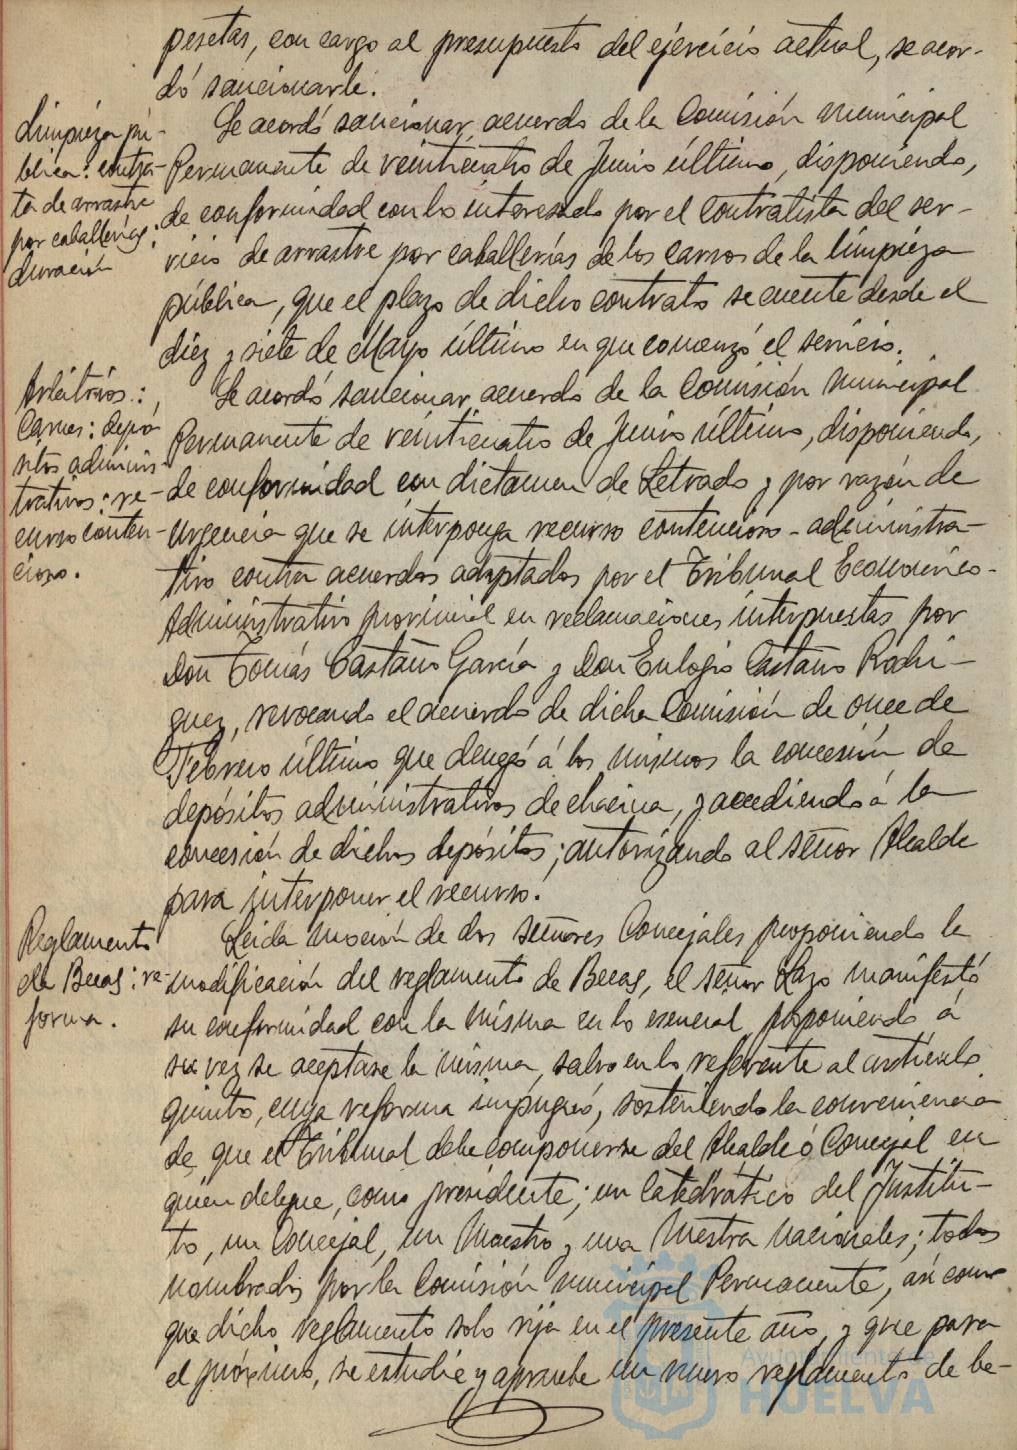 pesetas, con cargo al presupuesto del ejercicio actual, se acor-
dó sancionarle.
Limpieza pú-
blica: contra-
ta de arrastre
por caballerías:
duración
Se acordó sancionar acuerdo de la Comisión municipal
Permanente de veinticuatro de Junio último, disponiendo,
de conformidad con lo interesado por el contratista del ser-
vicio de arrastre por caballerías de los carros de la limpieza
pública, que el plazo de dicho contrato se cuente desde el
diez y siete de Mayo último en que comenzó el servicio.
Arbitrios:
Carnes: depó-
sitos adminis-
trativos: re-
curso conten-
cioso.
Se acordó sancionar acuerdo de la Comisión municipal
Permanente de veinticuatro de Junio último, disponiendo,
de conformidad con dictamen de Letrado y por razón de
urgencia que se interponga recurso contencioso-administra-
tivo contra acuerdos adoptados por el Tribunal Económico-
Administrativo provincial en reclamaciones interpuestas por
Don Tomás Castaño García y Don Eulogio Castaño Rodrí-
guez, revocando el acuerdo de dicha Comisión de once de
Febrero último que denegó á los mismos la concesión de
depósitos administrativos de chacina, y accediendo á la
concesión de dichos depósitos; autorizando al señor Alcalde
para interponer el recurso.
Reglamento
de Becas: re-
forma.
Leida moción de dos señores Concejales proponiendo la
modificación del reglamento de Becas, el señor Lazo manifestó
su conformidad con la misma en lo esencial, proponiendo á
su vez se aceptase la misma, salvo en lo referente al artículo
quinto, cuya reforma impugnó, sosteniendo la conveniencia
de que el Tribunal debe componerse del Alcalde ó Concejal en
quien delegue, como presidente; un Catedrático del Institu-
to, un Concejal, un Maestro y una Maestra nacionales; todos
nombrados por la Comisión municipal Permanente, así como
que dicho reglamento solo rija en el presente año, y que para
el próximo, se estudie y apruebe un nuevo reglamento de be-
Ayuntamiento de
HUELVA